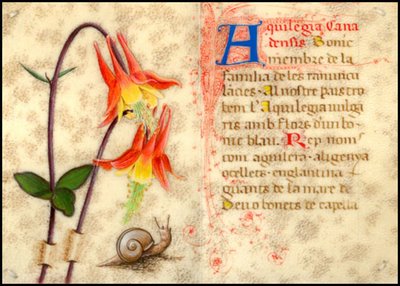 Aquilegia Cana
densis Bonic
membre de la
familia de les ranuncu
làcies. Al nostre país tro
bem l'Aquilegia vulga
ris amb flors d'un bo
nic blau. Rep noms
com aguilera, aligenya
ocellets, englantina
guants de la mare de
Deu o bonets de capellà